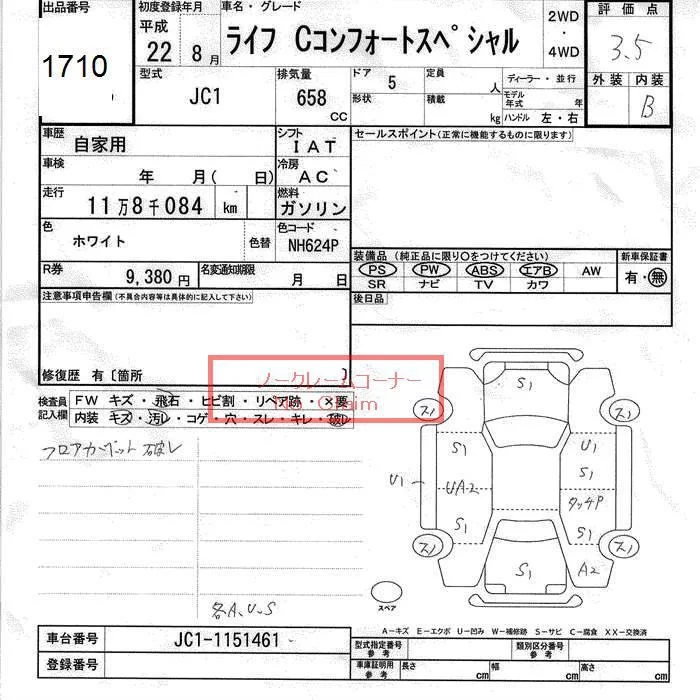 出品番号 初度登録年月 車名・グレード 評価点
1710 平成 22 8月 ライフ Cコンフォートスペシャル 2WD・4WD 3.5
型式 排気量 ドア 定員 ディーラー・並行 外装 内装
JC1 658 CC 5 人 B
形状 積載 kg モデル年式 年 ハンドル 左・右
車歴 自家用 シフト IAT セールスポイント(正常に機能するものに限ります)
車検 年 月( 日) 冷房 AC
走行 11万8千084 km 燃料 ガソリン
色 ホワイト 色替 色コード NH624P
装備品 (純正品に限り○をつけてください) 新車保証書
PS PW ABS エアB AW 有・無
SR ナビ TV カワ
R券 9,380円 名変通知期限 月 日
後日品
注意事項申告欄(不具合内容等は具体的に記入して下さい)
修復歴 有〔箇所 〕
ノークレームコーナー
No Claim
検査員記入欄 FW キズ・飛石・ヒビ割・リペア跡・×要
内装 キズ・汚レ・コゲ・穴・スレ・キレ・破レ
フロアカーペット破レ
S1
ス1 ス1
S1 U1
S1
U1 UA2 タッチP
S1 S1
ス1 ス1
S1 A2
スペア
各A、U、S
A−キズ E−エクボ U−凹み W−補修跡 S−サビ C−腐食 XX−交換済
車台番号 JC1-1151461 型式指定番号 参考 類別区分番号 参考
登録番号 車庫証明用 参考 長さ cm 幅 cm 高さ cm